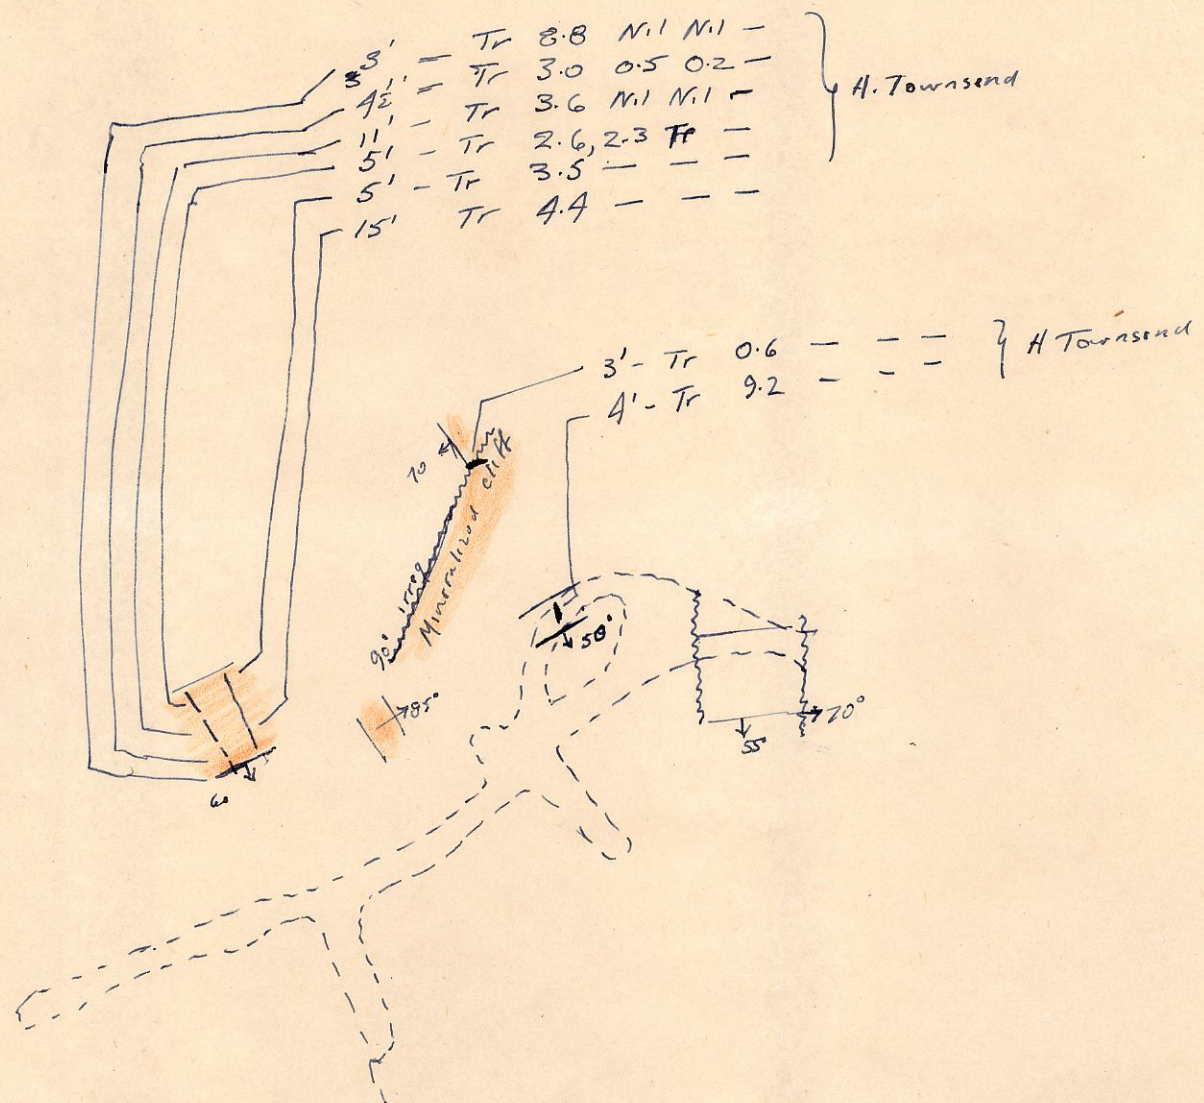 3' = Tr 8.8 Nil Nil —
4½' = Tr 3.0 0.5 0.2 —
11' - Tr 3.6 Nil Nil -
5' - Tr 2.6, 2.3 Tr —
5' - Tr 3.5 — — —
15' Tr 4.4 — — —
H. Townsend
3' - Tr 0.6 — — —
4' - Tr 9.2 - - -
H Townsend
70
Mineralized cliff
90' irreg
50°
85°
70°
55
60